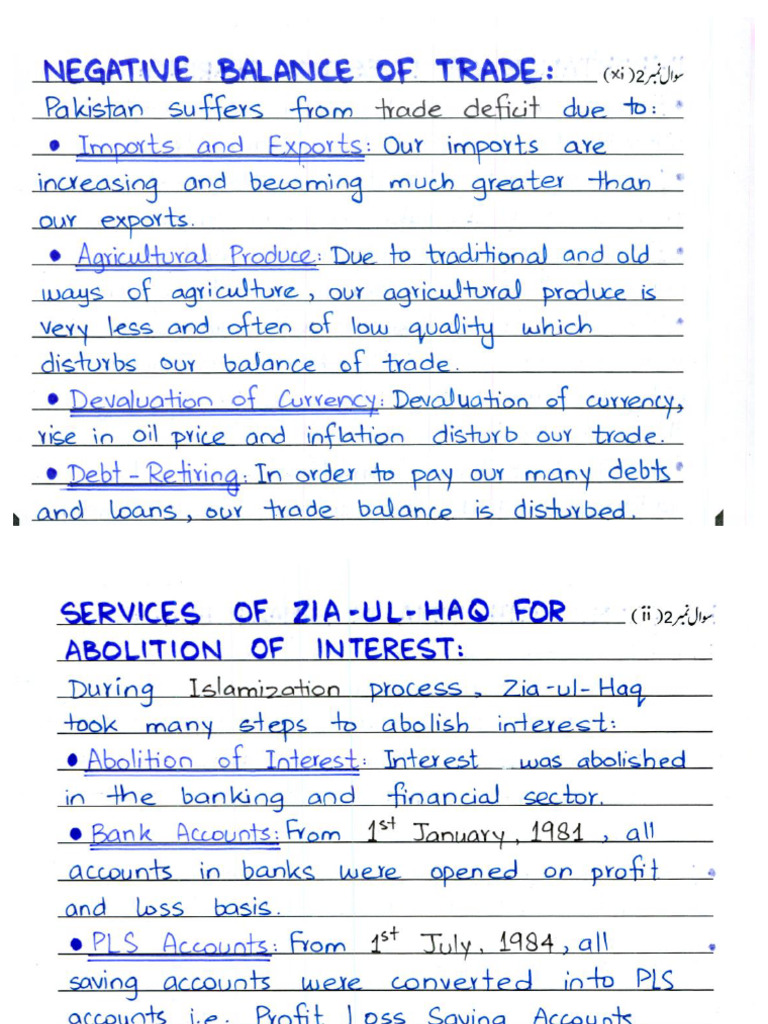 NEGATIVE BALANCE OF TRADE: سوال نمبر 2 (xi)
Pakistan suffers from trade deficit due to:
• Imports and Exports: Our imports are
increasing and becoming much greater than
our exports.
• Agricultural Produce: Due to traditional and old
ways of agriculture, our agricultural produce is
very less and often of low quality which
disturbs our balance of trade.
• Devaluation of Currency: Devaluation of currency,
rise in oil price and inflation disturb our trade.
• Debt-Retiring: In order to pay our many debts
and loans, our trade balance is disturbed.
SERVICES OF ZIA-UL-HAQ FOR سوال نمبر 2 (ii)
ABOLITION OF INTEREST:
During Islamization process, Zia-ul-Haq
took many steps to abolish interest:
• Abolition of Interest: Interest was abolished
in the banking and financial sector.
• Bank Accounts: From 1st January, 1981, all
accounts in banks were opened on profit
and loss basis.
• PLS Accounts: From 1st July, 1984, all
saving accounts were converted into PLS
accounts i.e. Profit Loss Saving Accounts